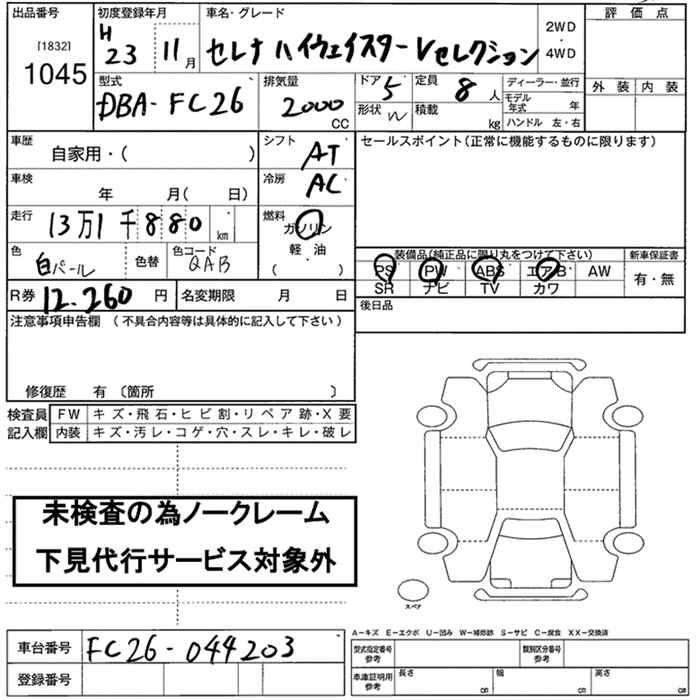 出品番号 [1832] 1045
初度登録年月 H 23 11月
車名・グレード セレナ ハイウェイスター Vセレクション
2WD ・ 4WD
評価点
外装 内装
型式 DBA-FC26
排気量 2000 CC
ドア 5
形状 W
定員 8 人
積載 kg
ディーラー・並行
モデル年式 年
ハンドル 左・右
車歴 自家用・( )
シフト AT
セールスポイント(正常に機能するものに限ります)
車検 年 月( 日)
冷房 AC
走行 13万1千880 km
燃料 ガソリン
軽油
( )
色 白パール 色替 色コード QAB
装備品(純正品に限り丸をつけて下さい) 新車保証書
PS PW ABS エアB AW 有・無
SR ナビ TV カワ
R券 12.260 円 名変期限 月 日
後日品
注意事項申告欄 (不具合内容等は具体的に記入して下さい)
修復歴 有 〔箇所 〕
検査員記入欄 FW キズ・飛石・ヒビ割・リペア跡・X要
内装 キズ・汚レ・コゲ・穴・スレ・キレ・破レ
未検査の為ノークレーム
下見代行サービス対象外
スペア
A−キズ E−エクボ U−凹み W−補修跡 S−サビ C−腐食 XX−交換済
車台番号 FC26-044203
型式指定番号 参考 類別区分番号 参考
登録番号
車庫証明用 参考 長さ cm 幅 cm 高さ cm